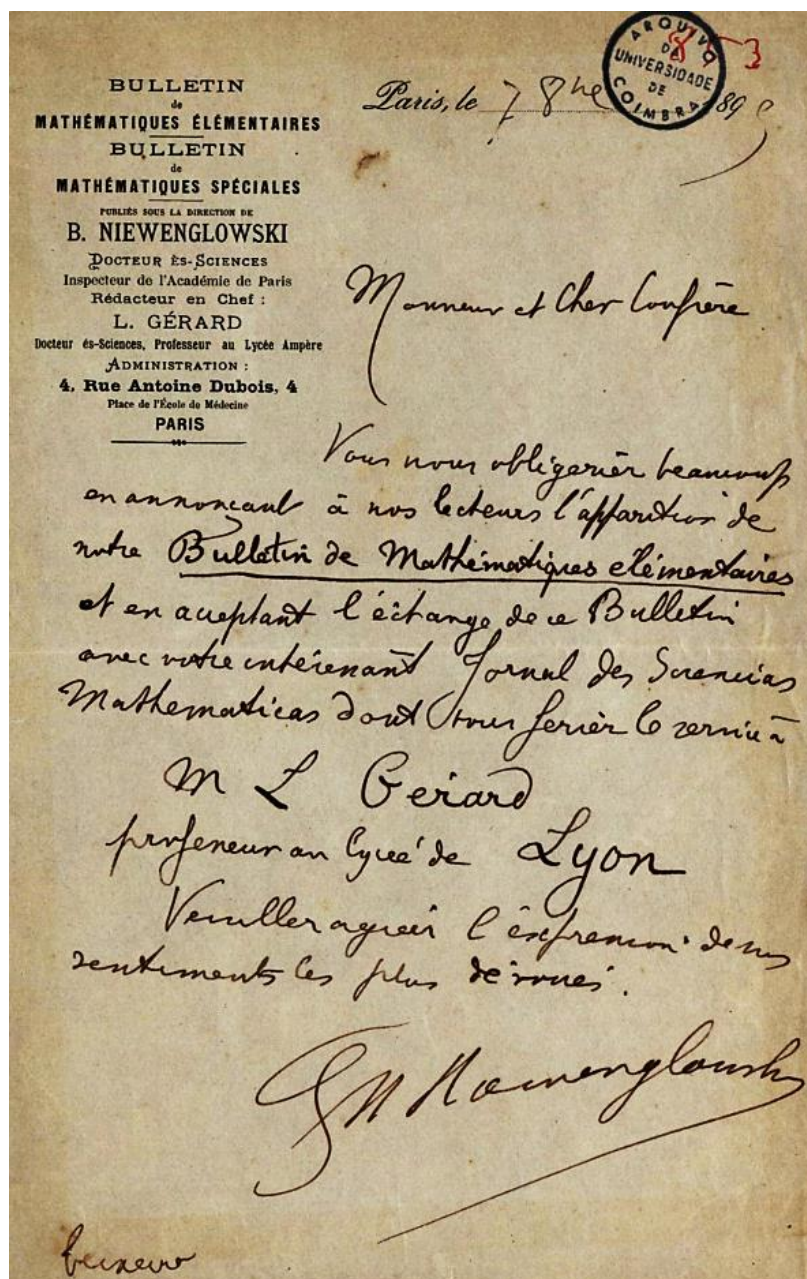 BULLETIN
de
MATHÉMATIQUES ÉLÉMENTAIRES
BULLETIN
de
MATHÉMATIQUES SPÉCIALES
PUBLIÉS SOUS LA DIRECTION DE
B. NIEWENGLOWSKI
DOCTEUR ÈS-SCIENCES
Inspecteur de l'Académie de Paris
Rédacteur en Chef :
L. GÉRARD
Docteur és-Sciences, Professeur au Lycée Ampère
ADMINISTRATION :
4, Rue Antoine Dubois, 4
Place de l'École de Médecine
PARIS
ARQUIVO
DA
UNIVERSIDADE
DE
COIMBRA
Paris, le 7 8bre 189
Monsieur et Cher Confrère
Vous nous obligeriez beaucoup
en annonçant à nos lecteurs l'apparition de
notre Bulletin de Mathématiques elémentaires
et en acceptant l'échange de ce Bulletin
avec votre intéressant Jornal des Sciencias
Mathematicas dont vous feriez le service à
M L Gérard
professeur au lycée de Lyon
Veuillez agréer l'expression de nos
sentiments les plus dévoués.
Niewenglowski